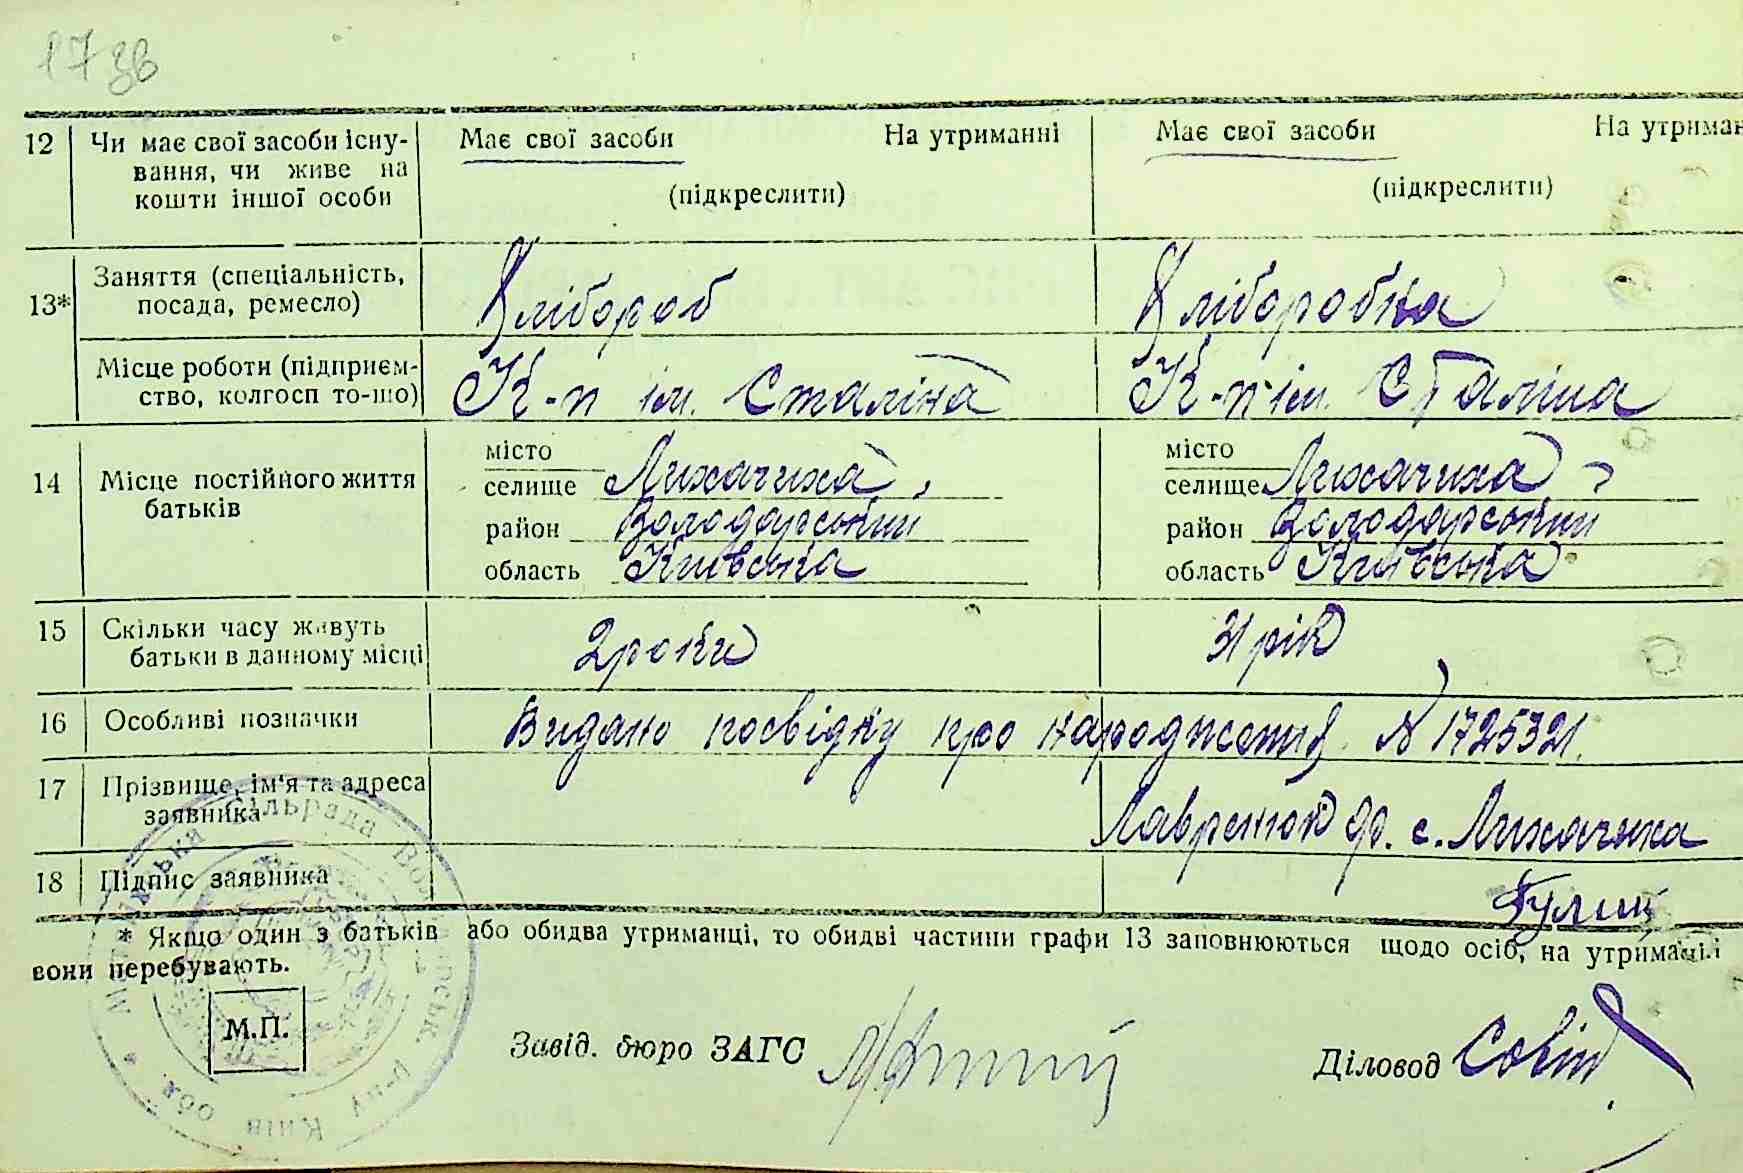 173в
12 Чи має свої засоби існу- Має свої засоби На утриманні Має свої засоби На утриман
вання, чи живе на
кошти іншої особи (підкреслити) (підкреслити)
13* Заняття (спеціальність, Хлібороб Хліборобка
посада, ремесло)
Місце роботи (підприєм- К-п ім. Сталіна К-п ім. Сталіна
ство, колгосп то-що)
14 Місце постійного життя місто місто
батьків селище Лихачиха, селище Лихачиха,
район Володарський район Володарський
область Київська область Київська
15 Скільки часу живуть 2 роки 31 рік
батьки в данному місці
16 Особливі позначки Видано посвідку про народження № 1725321.
17 Прізвище, ім'я та адреса
заявника Лавренюк с. Лихачиха
18 Підпис заявника
* Якщо один з батьків або обидва утриманці, то обидві частини графи 13 заповнюються щодо осіб, на утриманні
вони перебувають.
М.П.
Завід. бюро ЗАГС Діловод
сільрада Володарськ. р-ну Київ обл. *